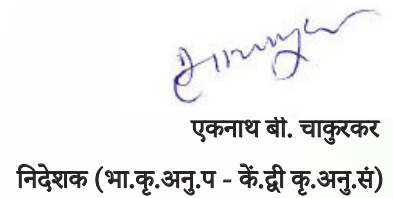 एकनाथ बी. चाकुरकर
निदेशक (भा.कृ.अनु.प - कें.द्वी कृ.अनु.सं)